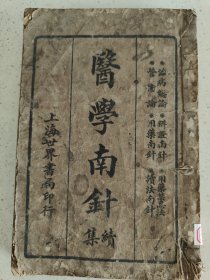 ●診病總論●辨證南針●用藥
●用藥南針●讀法南針
醫學南針
續集
上海世界書局印行